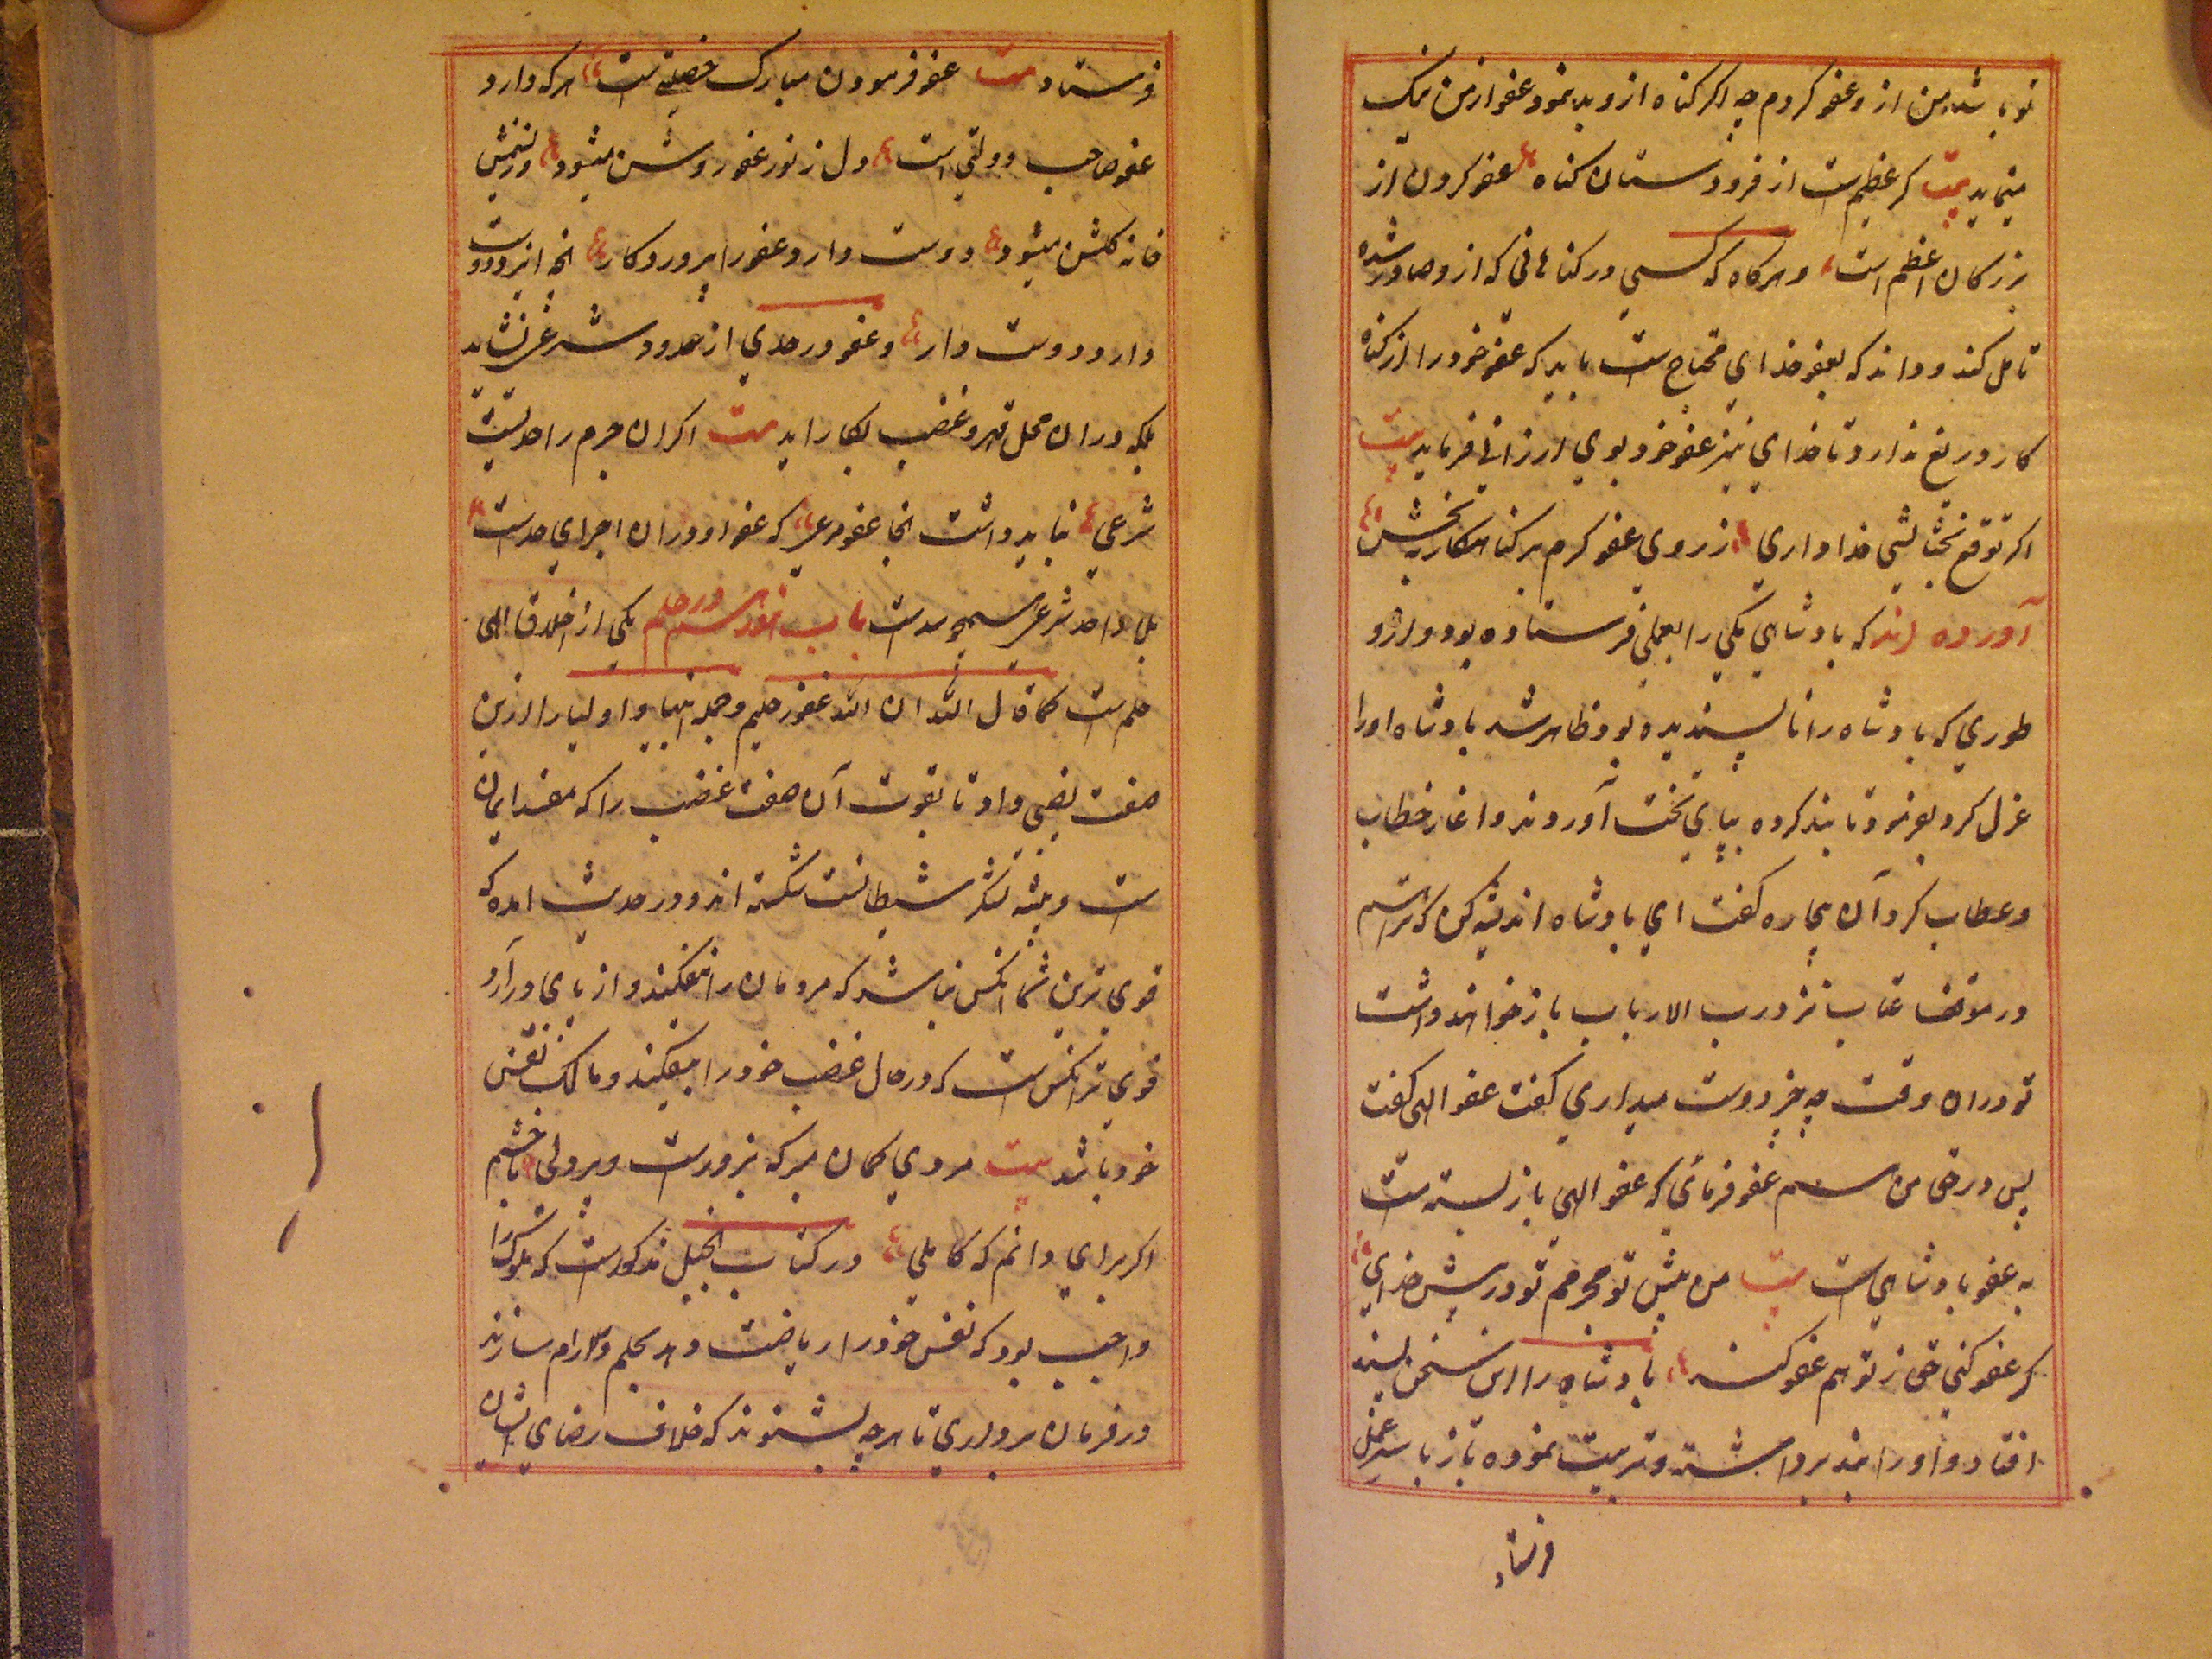 تو باشد من از و عفو کردم چه اکر کناه از و بد نمود عفو از من نیک
مینماید بیت کر عظیم ست از فرودستان کناه عفو کردن از
بزرکان اعظم است و هرکاه که کسی در کناهانی که از و صادر شده
تامل کند و داند که بعفو خدای محتاج ست باید که عفو خود را از کناه
کار دریغ ندارد تا خدای نیز عفو خود بوی ارزانی فرماید بیت
اکر توقع بخشایش خدا داری ز روی عفو کرم بر کناهکار ببخش
آورده اند که بادشاهی یکی را بعملی فرستاده بود و ازو
طوری که بادشاه را نا پسندیده بود ظاهر شد بادشاه اورا
عزل کرد بفرمود تا بند کرده بپای تخت آوردند و اغاز خطاب
و عطاب کرد آن بیچاره کفت ای بادشاه اندیشه کن که ترا هم
در موقف عتاب نزد رب الارباب باز خواهند داشت
تو دران وقت چه چیز دوست میداری کفت عفو الهی کفت
پس در حق من هم عفو فرمای که عفو الهی باز بسته ست
به عفو بادشاهی ست بیت من پیش تو مجرمم تو در پیش خدای
کر عفو کنی حق ز تو هم عفو کند بادشاه را این سخن پسند
افتاد و اورا بند برداشته و تربیت نموده باز با سر عمل
فرستاد
فرستاد بیت عفو فرمودن مبارک خصلتی ست هرکه دارد
عفو صاحب دولتی است دل ز نور عفو روشن میشود وز نسیمش
خانه کلشن میشود دوست دارد عفو را پروردکار انچه ایزد دوست
دارد دوست دار و عفو در حدی از حدود شرعی نشاید
بلکه دران محل قهر و غضب بکار اید بیت اکر ان جرم را حدیست
شرعی نباید داشت انجا عفو مرعی که عفو او دران اجرای حدست
باب نوزدهم در حلم یکی از اخلاق الهی
حلم ست کما قال الله ان الله غفور حلیم و جمله انبیا و اولیا را ازین
صفت نصیبی داد تا بقوت آن صفت غضب را که مفسد ایمان
ست و لشکر شیطانست شکسته اند و در حدیث امده که
قوی ترین شما انکس نباشد که مردمان را بیفکند و از پای درآرد
قوی تر انکس ست که در حال غضب خود را بیفکند و مالک نفس
خود باشد بیت مردی کمان مبر که بزورست و پردلی با خشم
اکر برای دانم که کاملی در کتاب انجیل مذکورست که ملوک را
واجب بود که نفس خود را ریاضت دهد بحلم و آرام سازند
در فرمان برداری تا هرچه بشنوند که خلاف رضای ایشان